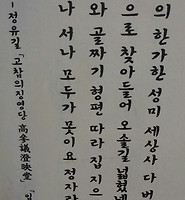 의 한가한 성미 세상사 다 버
으로 찾아들어 오솔길 넓혔네
와 골짜기 형편 따라 집 지으
나 서나 모두가 못이요 정자라
- 정유길「고참의징영당 高參議澄映堂」